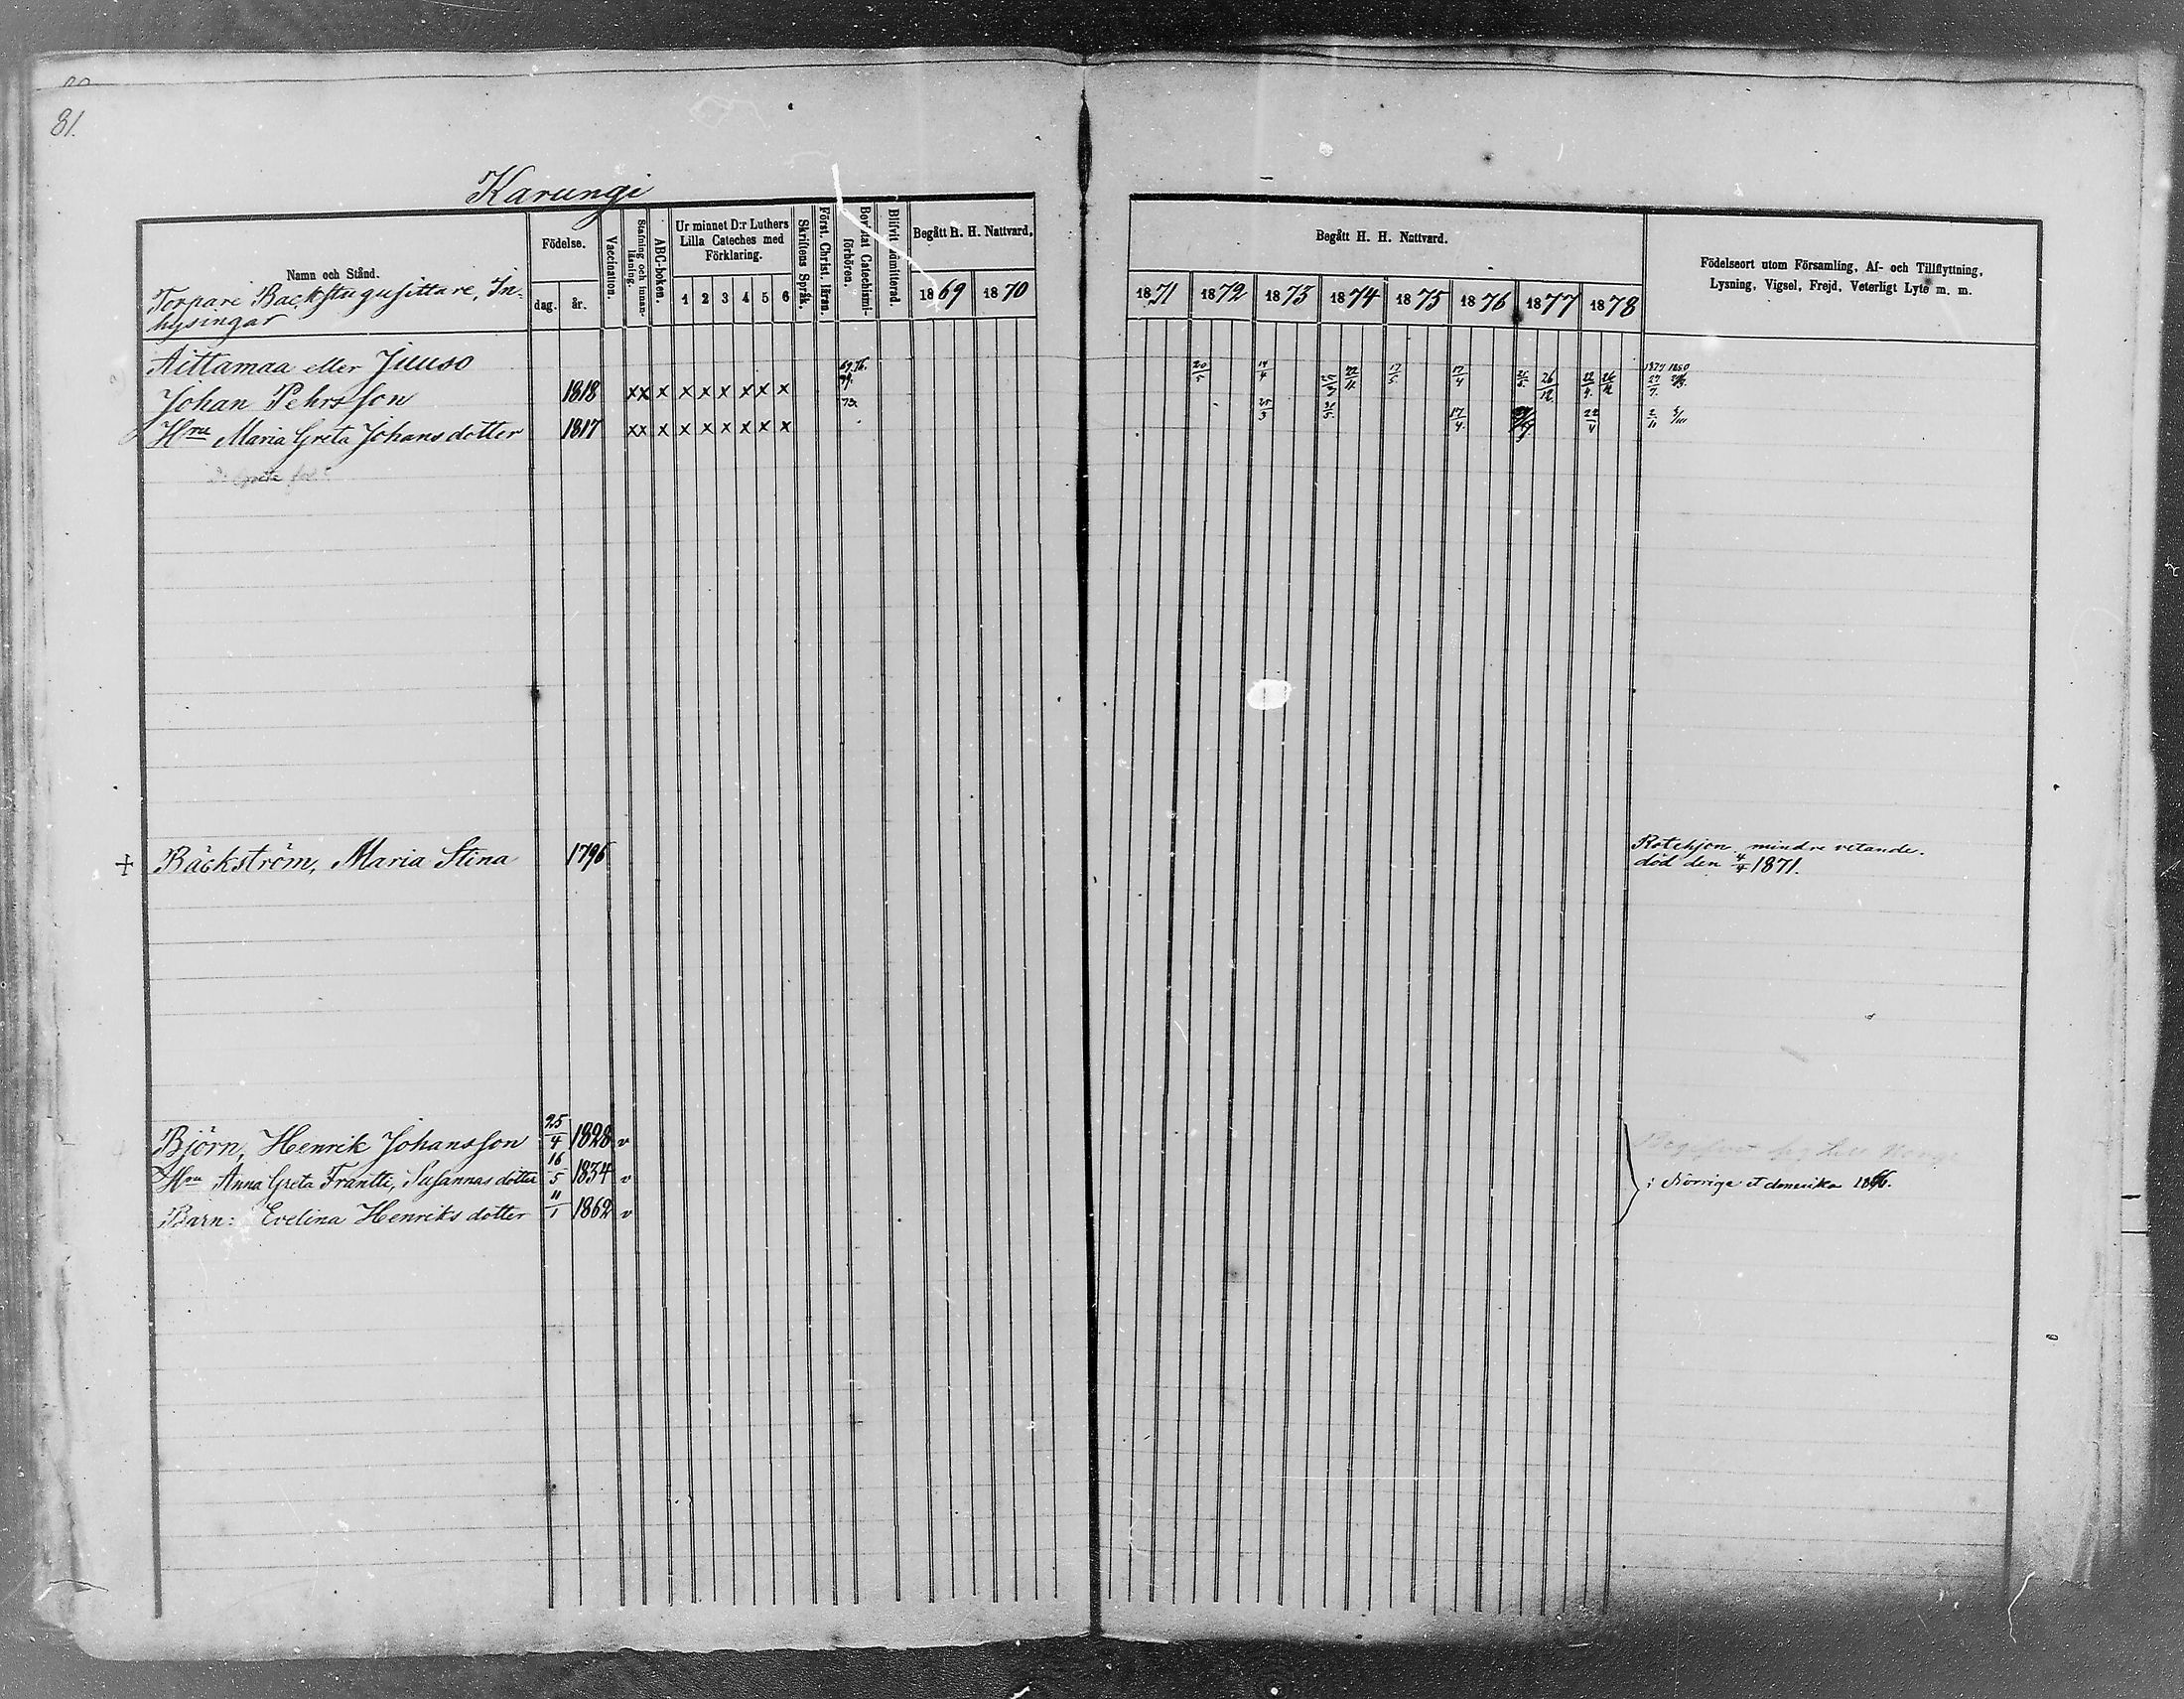 81.
Karungi
Namn och Stånd.
Torpare Backstugusittare, In-
hysingar
Födelse.
dag. år.
Vaccination.
Stafning och innan-
läsning.
ABC-boken.
Ur minnet D:r Luthers
Lilla Cateches med
Förklaring.
1 2 3 4 5 6
Skriftens Språk.
Först. Christ. läran.
Bevistat Catechismi-
förhören.
Blifvit admitterad.
Begått H. H. Nattvard,
1869 1870
Begått H. H. Nattvard.
1871 1872 1873 1874 1875 1876 1877 1878
Födelseort utom Församling, Af- och Tillflyttning,
Lysning, Vigsel, Frejd, Veterligt Lyte m. m.
Aittamaa eller Juuso
Johan Pehrsson 1818 x x x x x x x x x 69. 76. 20/5 14/4 22/11 17/5 17/4 26/12 1879 1880
Hru Maria Greta Johansdotter 1817 x x x x x x x x x 73 25/3 17/4 22/4 2/11
Greta
+ Bäckström, Maria Stina 1796 Rotehjon mindre vetande.
död den 4/4 1871.
Björn, Henrik Johansson 25/4 1828 v
Hru Anna Greta Frantti, Susannas dotter 16/5 1834 v i Norrige et America 1866.
Barn: Evelina Henriks dotter 11/1 1862 v